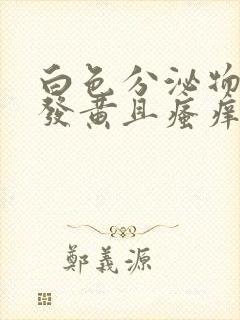 白色分泌物
發黃且瘙癢
鄭義源